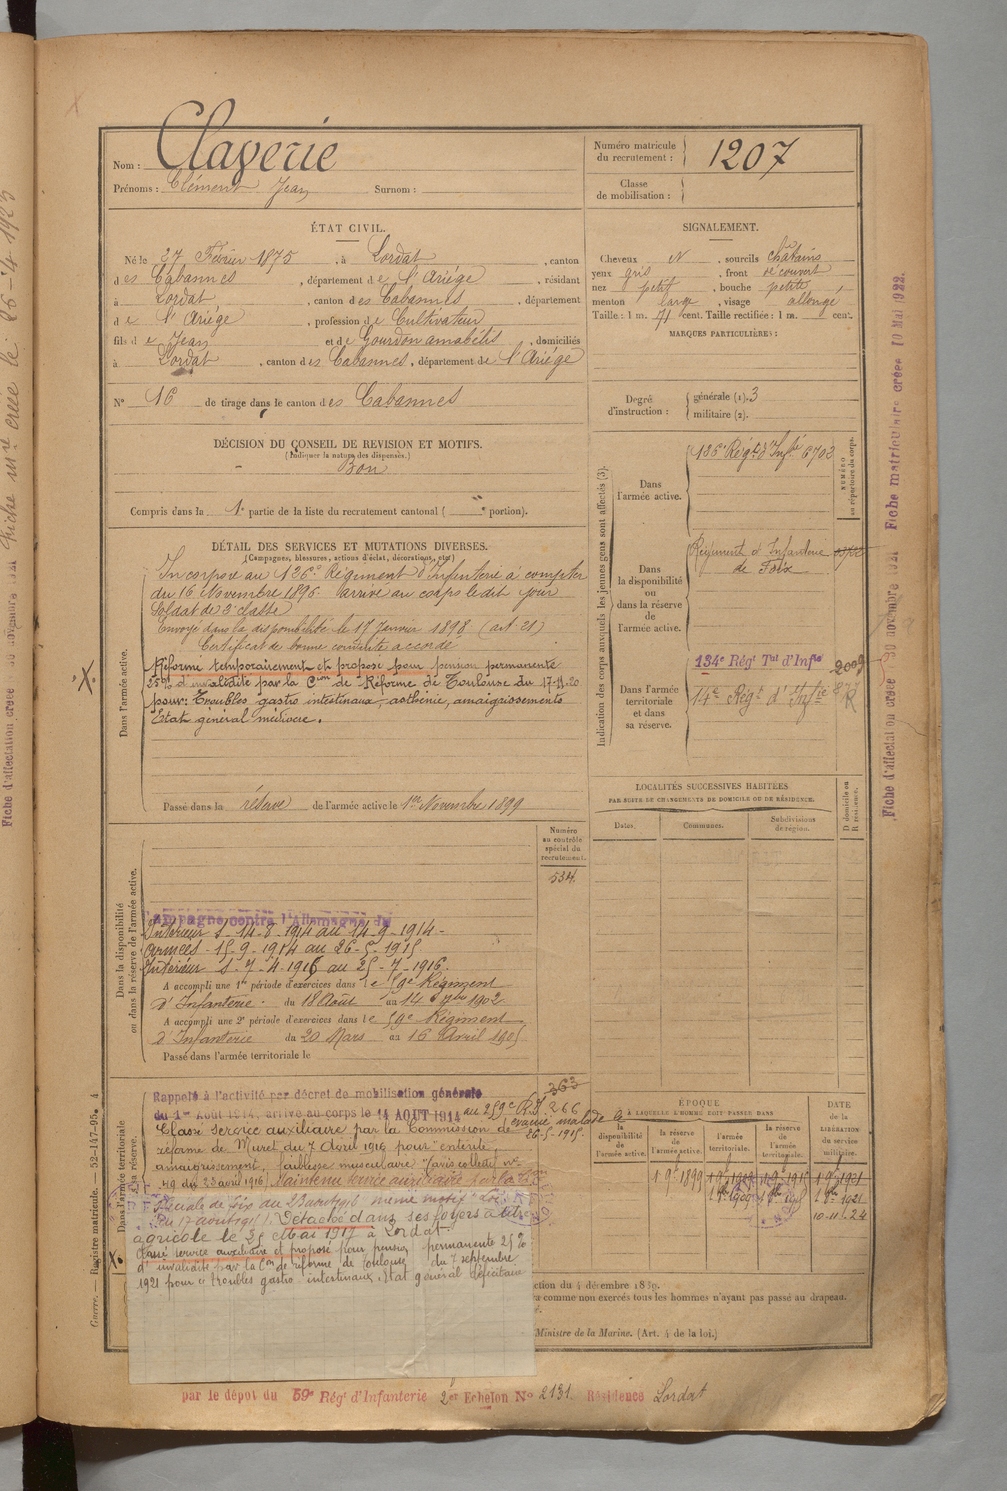 Nom : Claverie
Prénoms : Clément Jean Surnom :
Numéro matricule du recrutement : 1207
Classe de mobilisation :
ÉTAT CIVIL.
Né le 27 Février 1875, à Lordat, canton
des Cabannes, département de l'Ariège, résidant
à Lordat, canton des Cabannes, département
de l'Ariège, profession de Cultivateur
fils de Jean et de Gourdon amabélis, domiciliés
à Lordat, canton des Cabannes, département de l'Ariège
N° 16 de tirage dans le canton des Cabannes
SIGNALEMENT.
Cheveux N, sourcils châtains
yeux gris, front découvert
nez petit, bouche petite
menton large, visage allongé
Taille : 1 m. 71 cent. Taille rectifiée : 1 m. cent.
MARQUES PARTICULIÈRES :
Degré d'instruction : générale (1). 3
militaire (2).
DÉCISION DU CONSEIL DE REVISION ET MOTIFS.
(Indiquer la nature des dispenses.)
Bon
Compris dans la 1e partie de la liste du recrutement cantonal ( portion).
DÉTAIL DES SERVICES ET MUTATIONS DIVERSES.
(Campagnes, blessures, actions d'éclat, décorations, etc.)
Dans l'armée active.
Incorporé au 126e Régiment d'Infanterie à compter
du 16 Novembre 1896 arrivé au corps le dit jour
Soldat de 2e classe
Envoyé dans la disponibilité le 17 Janvier 1898 (art 21)
Certificat de bonne conduite accordé
Réformé temporairement et proposé pour pension permanente
25% d'invalidité par la Cion de Réforme de Toulouse du 17-11-20
pour : Troubles gastro intestinaux, asthénie, amaigrissements
Etat général médiocre.
Passé dans la réserve de l'armée active le 1er Novembre 1899
Indication des corps auxquels les jeunes gens sont affectés (3).
NUMÉRO au répertoire du corps.
Dans l'armée active.
126e Régt d'Infie 6702
Dans la disponibilité ou dans la réserve de l'armée active.
Régiment d'Infanterie de Foix
Dans l'armée territoriale et dans sa réserve.
134e Régt Tal d'Infie 2009
14e Régt d'Infie
LOCALITÉS SUCCESSIVES HABITÉES
PAR SUITE DE CHANGEMENTS DE DOMICILE OU DE RÉSIDENCE.
Dates. Communes. Subdivisions de région. D domicile ou R résidence.
Numéro au contrôle spécial du recrutement.
534
Dans la disponibilité ou dans la réserve de l'armée active.
Campagne contre l'Allemagne du
Intérieur S-14-8-1914 au 14-9-1914-
Armées-15-9-1914 au 26-5-1915
Intérieur S-7-4-1916 au 25-7-1916.
A accompli une 1re période d'exercices dans le 59e Régiment
d'Infanterie. du 18 Août au 14 7bre 1902
A accompli une 2e période d'exercices dans le 59e Régiment
d'Infanterie du 20 Mars au 16 Avril 1905
Passé dans l'armée territoriale le
363
Rappelé à l'activité par décret de mobilisation générale
du 1er Août 1914, arrivé au corps le 14 AOUT 1914 au 259e R.I. 266
évacué malade le 26-5-1915.
Classé service auxiliaire par la Commission de
réforme de Muret du 7 Avril 1916 pour "entérite,
amaigrissement, faiblesse musculaire" (avis collectif n°
49 du 23 avril 1916) Maintenu service auxiliaire par la Cion
Spéciale de Foix du
Détaché dans ses foyers à titre
agricole le 25 Mai 1917 à Lordat.
Classé service auxiliaire et proposé pour pension permanente 25%
d'invalidité par la Cion de réforme de Toulouse du 7 septembre
1921 pour "troubles gastro intestinaux, état général déficitaire
ÉPOQUE
À LAQUELLE L'HOMME DOIT PASSER DANS
la disponibilité de l'armée active. la réserve de l'armée active. l'armée territoriale. la réserve de l'armée territoriale.
DATE de la LIBÉRATION du service militaire.
1 9e 1899
10.11.24
ction du 4 décembre 1889.
a comme non exercés tous les hommes n'ayant pas passé au drapeau.
Ministre de la Marine. (Art. 4 de la loi.)
par le dépôt du 59e Régt d'Infanterie 2er Echelon No 2131 Résidence Lordat
Guerre. — Registre matricule. — 52-147-95. 4
Fiche d'affectation créée 30 novembre 1921 Fiche matriculaire créée 10 Mai 1922.
Fiche d'affectation créée 30 novembre 1921 Fiche mre créée le 26-4 1923